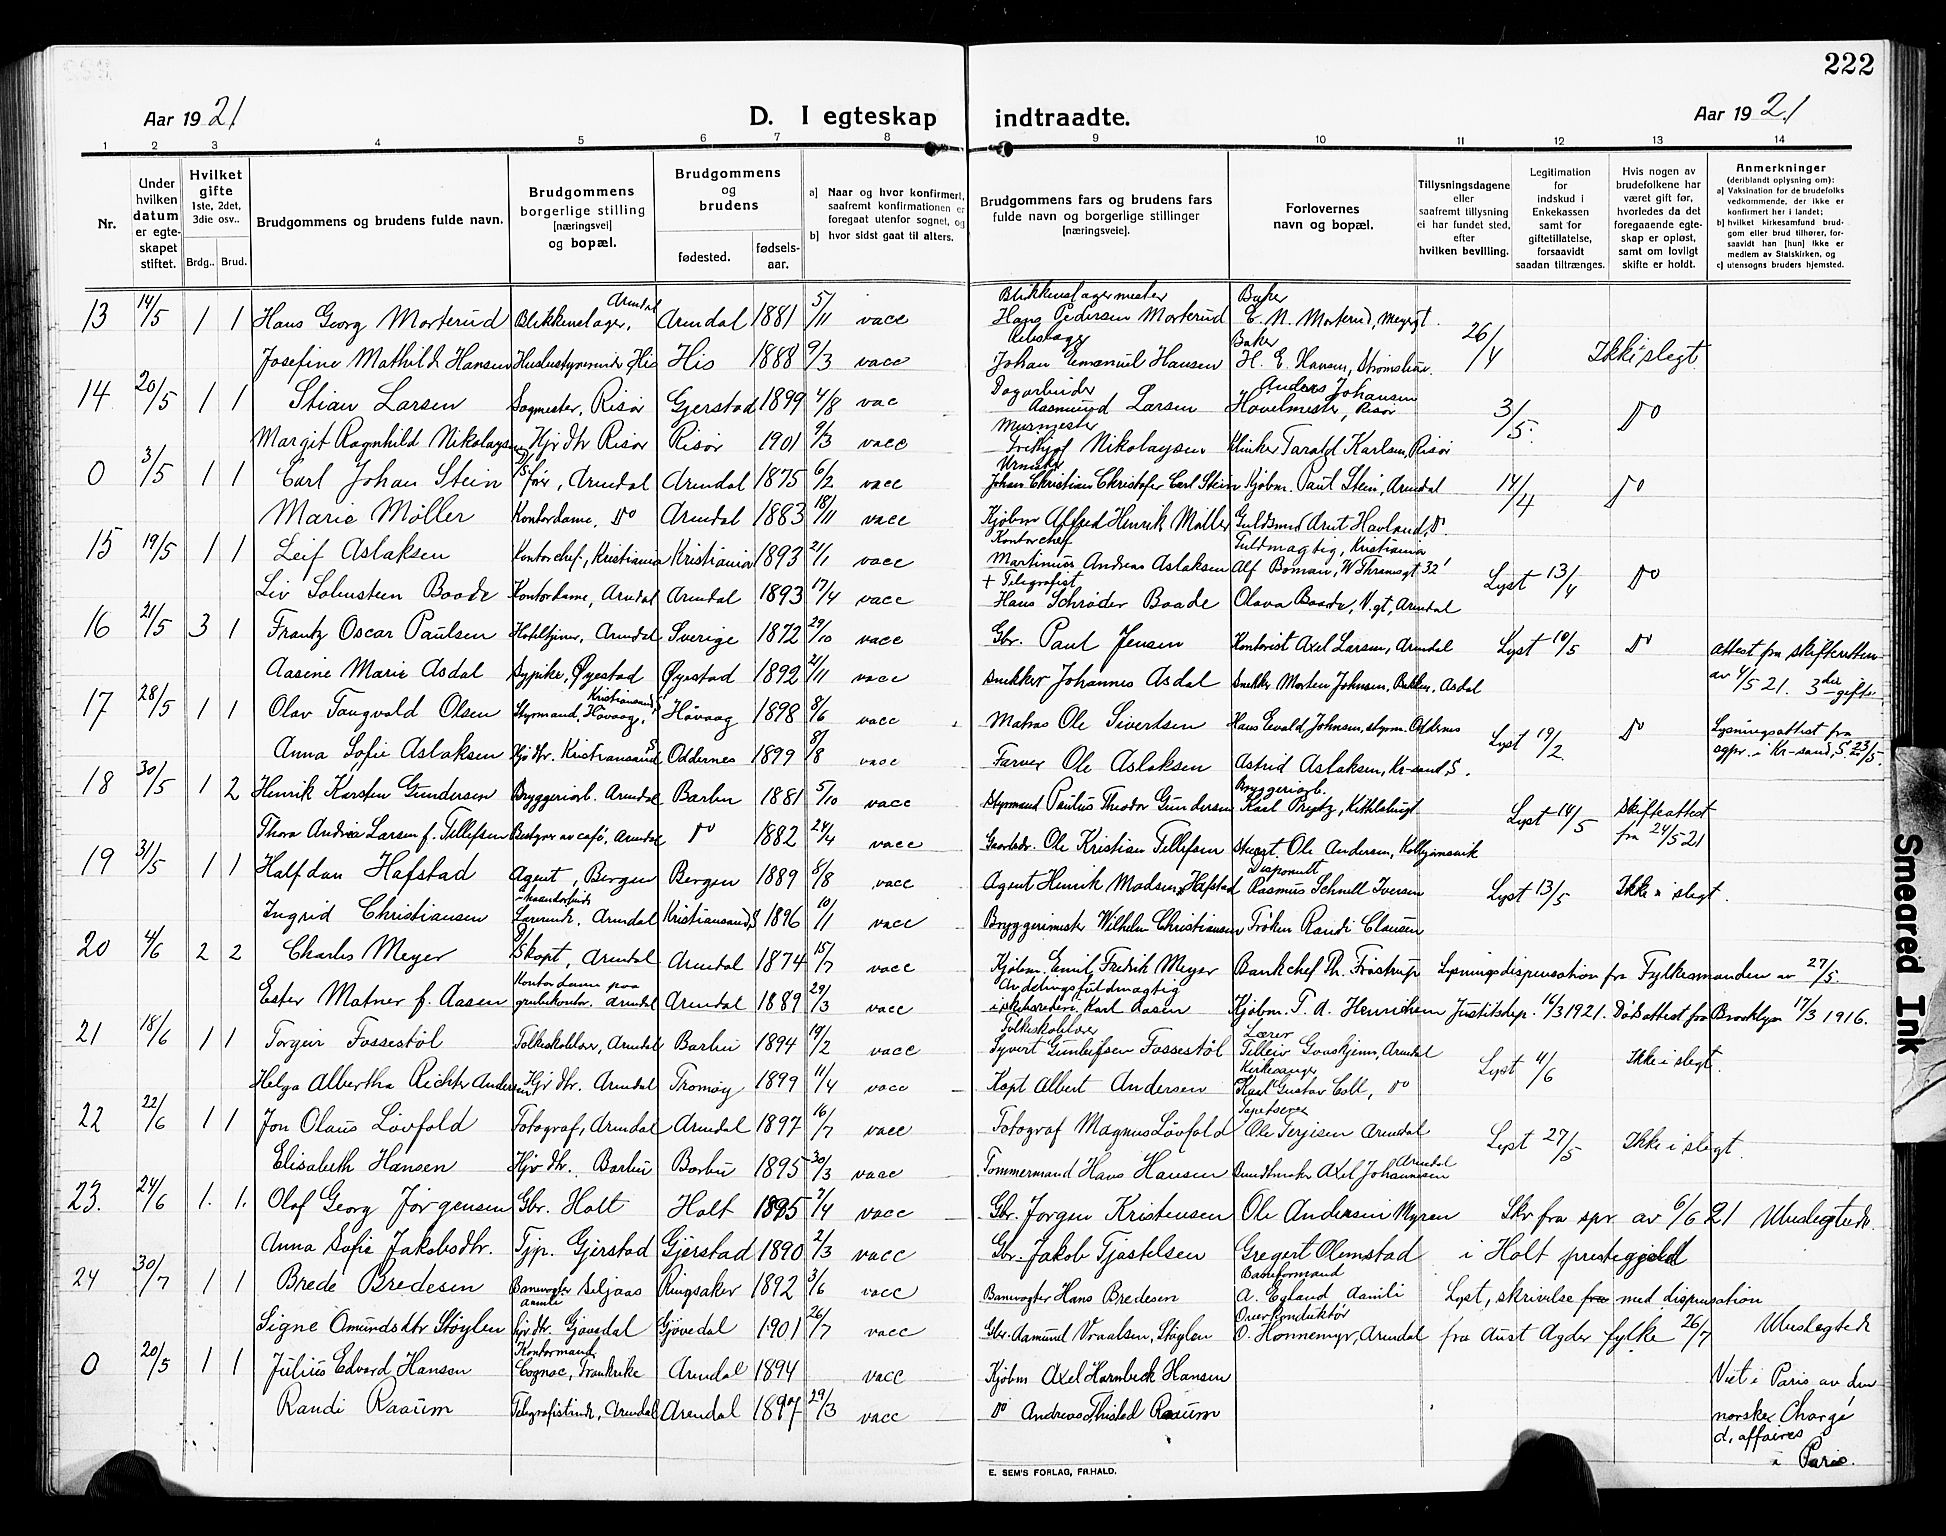 222
Aar 1921
D. I egteskap indtraadte.
Aar 1921
1 2 3 4 5 6 7 8 9 10 11 12 13 14
Nr.
Under hvilken datum er egteskapet stiftet.
Hvilket gifte 1ste, 2det, 3die osv..
Brdg.. Brud.
Brudgommens og brudens fulde navn.
Brudgommens borgerlige stilling [næringsvei] og bopæl.
Brudgommens og brudens
fødested. fødselsaar.
a) Naar og hvor konfirmert, saafremt konfirmationen er foregaat utenfor sognet, og
b) hvor sidst gaat til alters.
Brudgommens fars og brudens fars fulde navn og borgerlige stillinger [næringsveie].
Forlovernes navn og bopæl.
Tillysningsdagene eller saafremt tillysning ei har fundet sted, efter hvilken bevilling.
Legitimation for indskud i Enkekassen samt for giftetillatelse, forsaavidt saadan tiltrænges.
Hvis nogen av brudefolkene har været gift før, hvorledes da det foregaaende egteskap er opløst, samt om lovligt skifte er holdt.
Anmerkninger (deriblandt oplysning om): a) Vaksination for de brudefolks vedkommende, der ikke er konfirmert her i landet; b) hvilket kirkesamfund brudgom eller brud tilhører, forsaavidt han [hun] ikke er medlem av Statskirken, og c) utensogns bruders hjemsted.
13 14/5 1 1 Hans Georg Morterud Blikkenslager, Arendal Arendal 1881 5/11 vacc Blikkenslagermester Hans Pedersen Morterud Baker E. N. Morterud, Meyergt. 26/4 Ikke i slegt
Josefine Mathilde Hansen Husbestyrerinde His His 1888 9/3 vacc Johan Emanuel Hansen Baker H. E. Hansen, Strømsbu.
14 20/5 1 1 Stian Larsen Sagmester, Risør Gjerstad 1899 4/8 vac Dagarbeider Aasmund Larsen Anders Johansen Høvelmester, Risør 3/5. Do
Margit Ragnhild Nikolaysen Hjv dtr Risør Risør 1901 9/3 vacc Murmester Frithjof Nikolaysen Klinker Tarald Karlsen, Risør
0 3/5 1 1 Carl Johan Stein Skfør, Arendal Arendal 1875 6/2 vacc Urmaker Johan Christian Christofer Carl Stein Kjøbm. Paul Stein, Arendal 14/4 Do
Marie Møller Kontordame, Do Arendal 1883 18/11 vacc Kjøbm Alfred Henrik Møller Guldsmed Arnt Havland, Do.
15 19/5 1 1 Leif Aslaksen Kontorchef, Kristiania Kristiania 1893 21/1 vacc Kontorchef Martinius Andreas Aslaksen Fuldmægtig, Kristiania Alf Boman, W Thranesgt 32' Lyst 13/4 Do
Liv Solensteen Baade Kontordame, Arendal Arendal 1893 17/4 vacc + Telegrafist Hans Schrøder Baade Olava Baade, V. gt, Arendal
16 21/5 3 1 Frantz Oscar Paulsen Hoteltjener, Arendal Sverige 1872 29/10 vacc Gbr. Paul Jensen Kontorist Axel Larsen, Arendal Lyst 10/5 Do attest fra skifteretten av 4/5 21. 3die gifte
Aasene Marie Asdal Sypike, Øyestad Øyestad 1892 21/11 vacc Snekker Johannes Asdal Snekker Morten Johnsen, Bekken, Asdal
17 28/5 1 1 Olav Tangvald Olsen Styrmand, Høvaag, Kristiansand S Høvaag 1898 8/6 vacc Matros Ole Sivertsen Hans Evald Johnsen, styrm. Oddernes Lyst 19/2 Do Lysningsattest fra sgpr. i Kr-sand, S. 23/5.
Anna Sofie Aslaksen Hjv dtr. Kristiansand S Oddernes 1899 8/8 vacc Farver Ole Aslaksen Astrid Aslaksen, Kr-sand, S.
18 30/5 1 2 Henrik Karsten Gundersen Bryggeriarb. Arendal Barbu 1881 5/10 vacc Styrmand Paulus Theodor Gundersen Bryggeriarb. Karl Prytz, Kittelsbugt. Lyst 14/5 Skifteattest fra 24/5 21
Thora Andrea Larsen f. Tellefsen Bestyrer av café, Arendal Do 1882 24/4 vacc Gaardbr. Ole Kristian Tellefsen Stuert. Ole Andersen, Kolbjørnsvik
19 31/5 1 1 Halfdan Hafstad Agent, Bergen Bergen 1889 8/8 vacc Agent Henrik Madsen Hafstad Disponent Rasmus Schnell Iversen Lyst 13/5 Ikke i slegt.
Ingrid Christiansen Haandarbeids Lærerinde. Arendal Kristiansand S 1896 10/11 vacc Bryggerimester Wilhelm Christiansen Frøken Randi Clausen
20 4/6 2 2 Charles Meyer Skapt, Arendal Arendal 1874 15/7 vacc Kjøbm. Emil Fredrik Meyer Bankchef Th. Frøstrup Lysningsdispensation fra Fylkesmanden av 27/5.
Ester Matner f. Aasen Kontordame paa grubekontor. Arendal Arendal 1889 29/3 vacc Avdelingsfuldmægtig Karl Aasen Kjøbm. T. A. Henrichsen Justitsdep. 16/3 1921. Dødsattest fra Brooklyn 17/3 1916.
21 18/6 1 1 Torgeir Fossestøl Folkeskolelærer, Arendal Barbu 1894 19/2 vacc Folkeskolelærer Syvert Gunleifsen Fossestøl Lærer Tellev Graaskjem, Arendal Lyst 4/6 Ikke i slegt.
Helga Albertha Richter Andersen Hjv dtr. Arendal Tromøy 1899 11/4 vacc Kapt Albert Andersen Kirkesanger Karl Gustav Coll, Do
22 22/6 1 1 Jon Olaus Løvfold Fotograf, Arendal Arendal 1897 16/7 vacc Fotograf Magnus Løvfold Tapetserer Ole Terjesen Arendal Lyst 27/5 Ikke i slegt.
Elisabeth Hansen Hjv dtr. Barbu Barbu 1895 30/3 vacc Tømmermand Hans Hansen Bundtmaker Axel Johannesen Arendal
23. 24/6 1. 1. Olaf Georg Jørgensen Gbr. Holt Holt 1895 2/4 vacc Gbr. Jørgen Kristensen Ole Andersen Myren Skr fra spr av 6/6 21 Ubeslegtede.
Anna Sofie Jakobsdtr. Tjp. Gjerstad Gjerstad 1890 2/3 vacc Gbr. Jakob Tjøstelsen Gregert Olmstad i Holt prestegjeld
24 30/7 1 1 Brede Bredesen Banevogter Seljaas Aamli Ringsaker 1892 3/6 vacc Banevogter Hans Bredesen Baneformand A. Egland Aamli Lyst, skrivelse fra med dispensation
Signe Omundsdtr Støylen Hjv dtr. Gjøvedal Gjøvedal 1901 26/7 vacc Gbr. Aamund Vraalsen, Støylen Overkonduktør O. Hønnemyr, Arendal fra Aust Agder fylke 26/7 Ubeslegtede
0 20/5 1 1 Julius Edvard Hansen Kontormand, Cognac, Frankrike Arendal 1894 vacc Kjøbm Axel Harmbeck Hansen Viet i Paris av den norske Chargé d'affaires i Paris.
Randi Raaum Telegrafistinde, Arendal Arendal 1897 29/3 vacc Do Andreas Thistad Raaum
E. SEM'S FORLAG, FR.HALD.
Smeared Ink